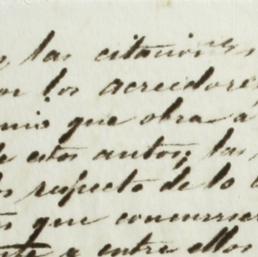 las citaciones
los acreedore
que obra a
de estos autos; las
respecto de lo
que concurrier
a entre ellos